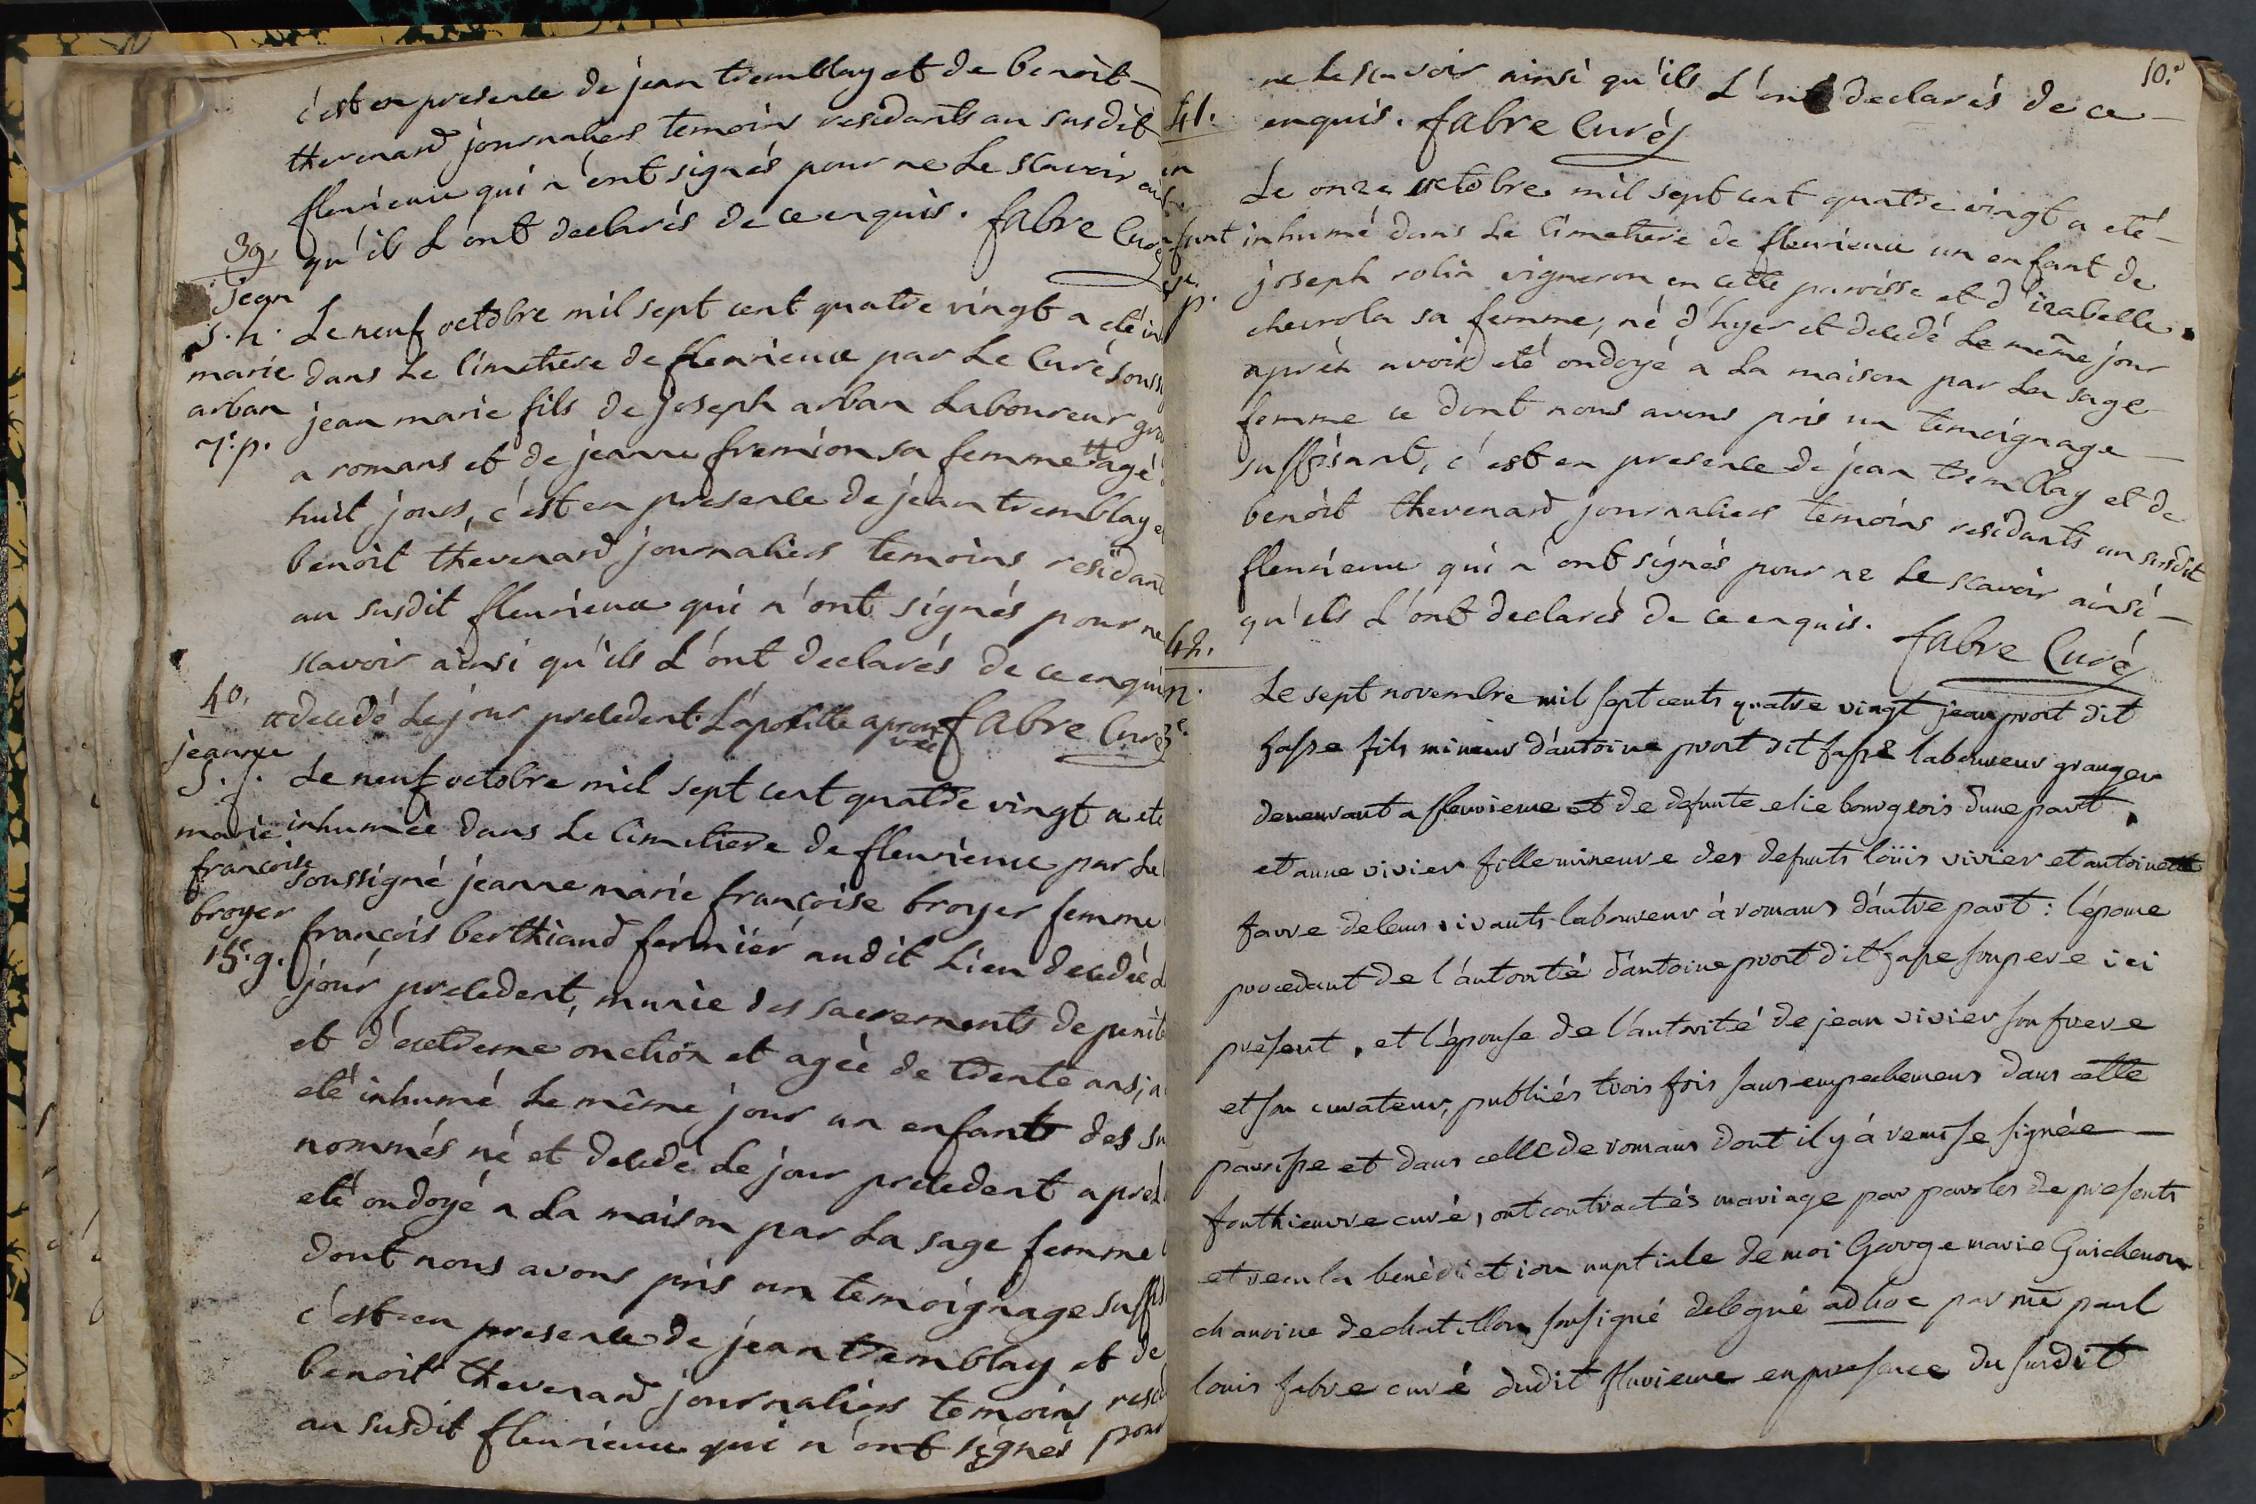 c'est en presence de jean tremblay et de benoit
thevenard journaliers temoins residants au susdit
fleurieux qui n'ont signés pour ne le scavoir
qu'ils l'ont declarés de ce enquis. fabre Curé
39.
jean
S. h.
marie
arban
7.e p.
Le neuf octobre mil sept cent quatre vingt a eté in
dans le cimetiere de fleurieux par le Curé souss
jean marie fils de joseph arban laboureur gra
a romans et de jeanne fremion sa femme # agé
huit jours, c'est en presence de jean tremblay e
benoit thevenard journaliers temoins residant
au susdit fleurieux qui n'ont signés pour ne
scavoir ainsi qu'ils l'ont declarés de ce enqui
# decedé le jour precedent. L'apostille aprouvée fabre Curé
40.
jeanne
S. f.
marie
françoise
broyer
15.e g.
Le neuf octobre mil sept cent quatre vingt a eté
inhumée dans le cimetiere de fleurieux par le
soussigné jeanne marie françoise broyer femme
françois berthiand fermiér audit lieu decedée
jour precedent, munie des sacrements de penite
et d'extreme onction et agée de trente ans, a
eté inhumé le même jour un enfant des su
nommés né et decedé le jour precedent aprés
eté ondoyé a la maison par la sage femme
dont nous avons pris un temoignage suffis
c'est en presence de jean tremblay et de
benoit thevenard journaliers temoins resid
au susdit fleurieux qui n'ont signés pour
10.e
ne le scavoir ainsi qu'ils l'ont declarés de ce
enquis. fabre Curé
41.
Le onze octobre mil sept cent quatre vingt a eté
inhumé dans le cimetiere de fleurieux un enfant de
joseph rolin vigneron en cette paroisse et d'izabelle
chevrola sa femme, né d'hyer et decedé le même jour
aprés avoir eté ondoyé a la maison par la sage
femme ce dont nous avons pris un temoignage
suffisant, c'est en presence de jean tremblay et de
benoit thevenard journaliers temoins residants au susdit
fleurieux qui n'ont signés pour ne le scavoir ainsi
qu'ils l'ont declarés de ce enquis. fabre Curé
42.
Le sept novembre mil sept cents quatre vingt jean prost dit
fasse fils mineur d'antoine prost dit fasse laboureur granger
demeurant a fleurieux et de defunte elie bourgeois d'une part,
et anne vivier fille mineure des defunts loüis vivier et antoinette
favre de leurs vivants laboureur à romans d'autre part : l'epoux
procedant de l'autorité d'antoine prost dit fasse son pere ici
present, et l'épouse de l'autorité de jean vivier son frere
et son curateur, publiés trois fois sans empechemens dans cette
paroisse et dans celle de romans dont il y a remise signée
fonthieuvre curé, ont contractés mariage par paroles de presents
et recu la benédiction nuptiale de moi George marie Guichenon
chanoine de chatillon soussigné delegué ad hoc par mre paul
louis fabre curé dudit fleurieux en presence du susdit